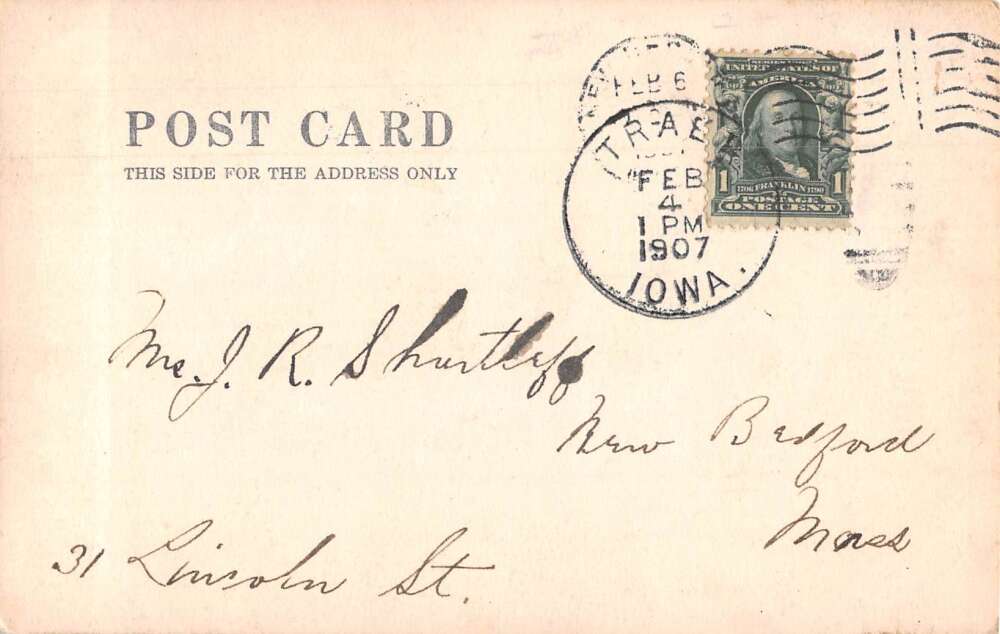 POST CARD
THIS SIDE FOR THE ADDRESS ONLY
FEB 6
TRAER
FEB
4
1 PM
1907
IOWA.
SERIES 1902
UNITED STATES OF
AMERICA
1706 FRANKLIN 1790
1 1
POSTAGE
ONE CENT
Mr. J. R. Shurtleff
New Bedford
Mass
31 Lincoln St.